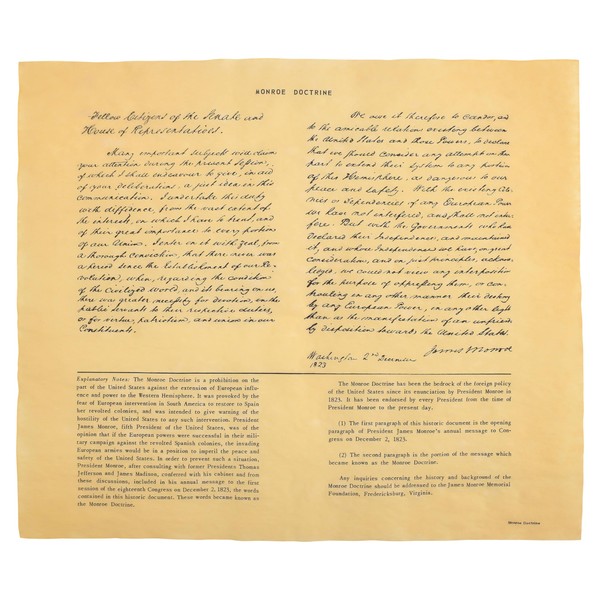 MONROE DOCTRINE
Fellow Citizens of the Senate and
House of Representatives.
Many important subjects will claim
your attention during the present Session,
of which I shall endeavour to give, in aid
of your deliberations, a just idea in this
Communication. I undertake this duty
with diffidence, from the vast extent of
the interests, on which I have to treat, and
of their great importance to every portion
of our Union. I enter on it with zeal, from
a thorough Conviction, that there never was
a period since the Establishment of our Re-
volution, when, regarding the Condition
of the Civilized world, and its bearing on us,
there was greater necessity for devotion, in the
public servants to their respective duties,
or for virtue, patriotism, and union in our
Constituents.
We owe it therefore to Candor, and
to the amicable relations existing between
the United States and those Powers, to declare
that we should consider any attempt on their
part to extend their System to any portion
of this Hemisphere, as dangerous to our
peace and safety. With the existing Colo-
nies or Dependencies of any European Power
we have not interfered, and shall not inter-
fere. But with the Governments who have
declared their Independence, and maintained
it, and whose Independence we have, on great
Consideration, and on just principles, acknow-
ledged, we could not view any interposition
for the purpose of oppressing them, or con-
trouling in any other manner their destiny
by any European Power, in any other light
than as the manifestation of an unfriendly
disposition towards the United States.
James Monroe
Washington 2nd December
1823
Explanatory Notes: The Monroe Doctrine is a prohibition on the
part of the United States against the extension of European influ-
ence and power to the Western Hemisphere. It was provoked by the
fear of European intervention in South America to restore to Spain
her revolted colonies, and was intended to give warning of the
hostility of the United States to any such intervention. President
James Monroe, fifth President of the United States, was of the
opinion that if the European powers were successful in their mili-
tary campaign against the revolted Spanish colonies, the invading
European armies would be in a position to imperil the peace and
safety of the United States. In order to prevent such a situation,
President Monroe, after consulting with former Presidents Thomas
Jefferson and James Madison, conferred with his cabinet and from
these discussions, included in his annual message to the first
session of the eighteenth Congress on December 2, 1823, the words
contained in this historic document. These words became known as
the Monroe Doctrine.
The Monroe Doctrine has been the bedrock of the foreign policy
of the United States since its enunciation by President Monroe in
1823. It has been endorsed by every President from the time of
President Monroe to the present day.
(1) The first paragraph of this historic document is the opening
paragraph of President James Monroe's annual message to Con-
gress on December 2, 1823.
(2) The second paragraph is the portion of the message which
became known as the Monroe Doctrine.
Any inquiries concerning the history and background of the
Monroe Doctrine should be addressed to the James Monroe Memorial
Foundation, Fredericksburg, Virginia.
Monroe Doctrine